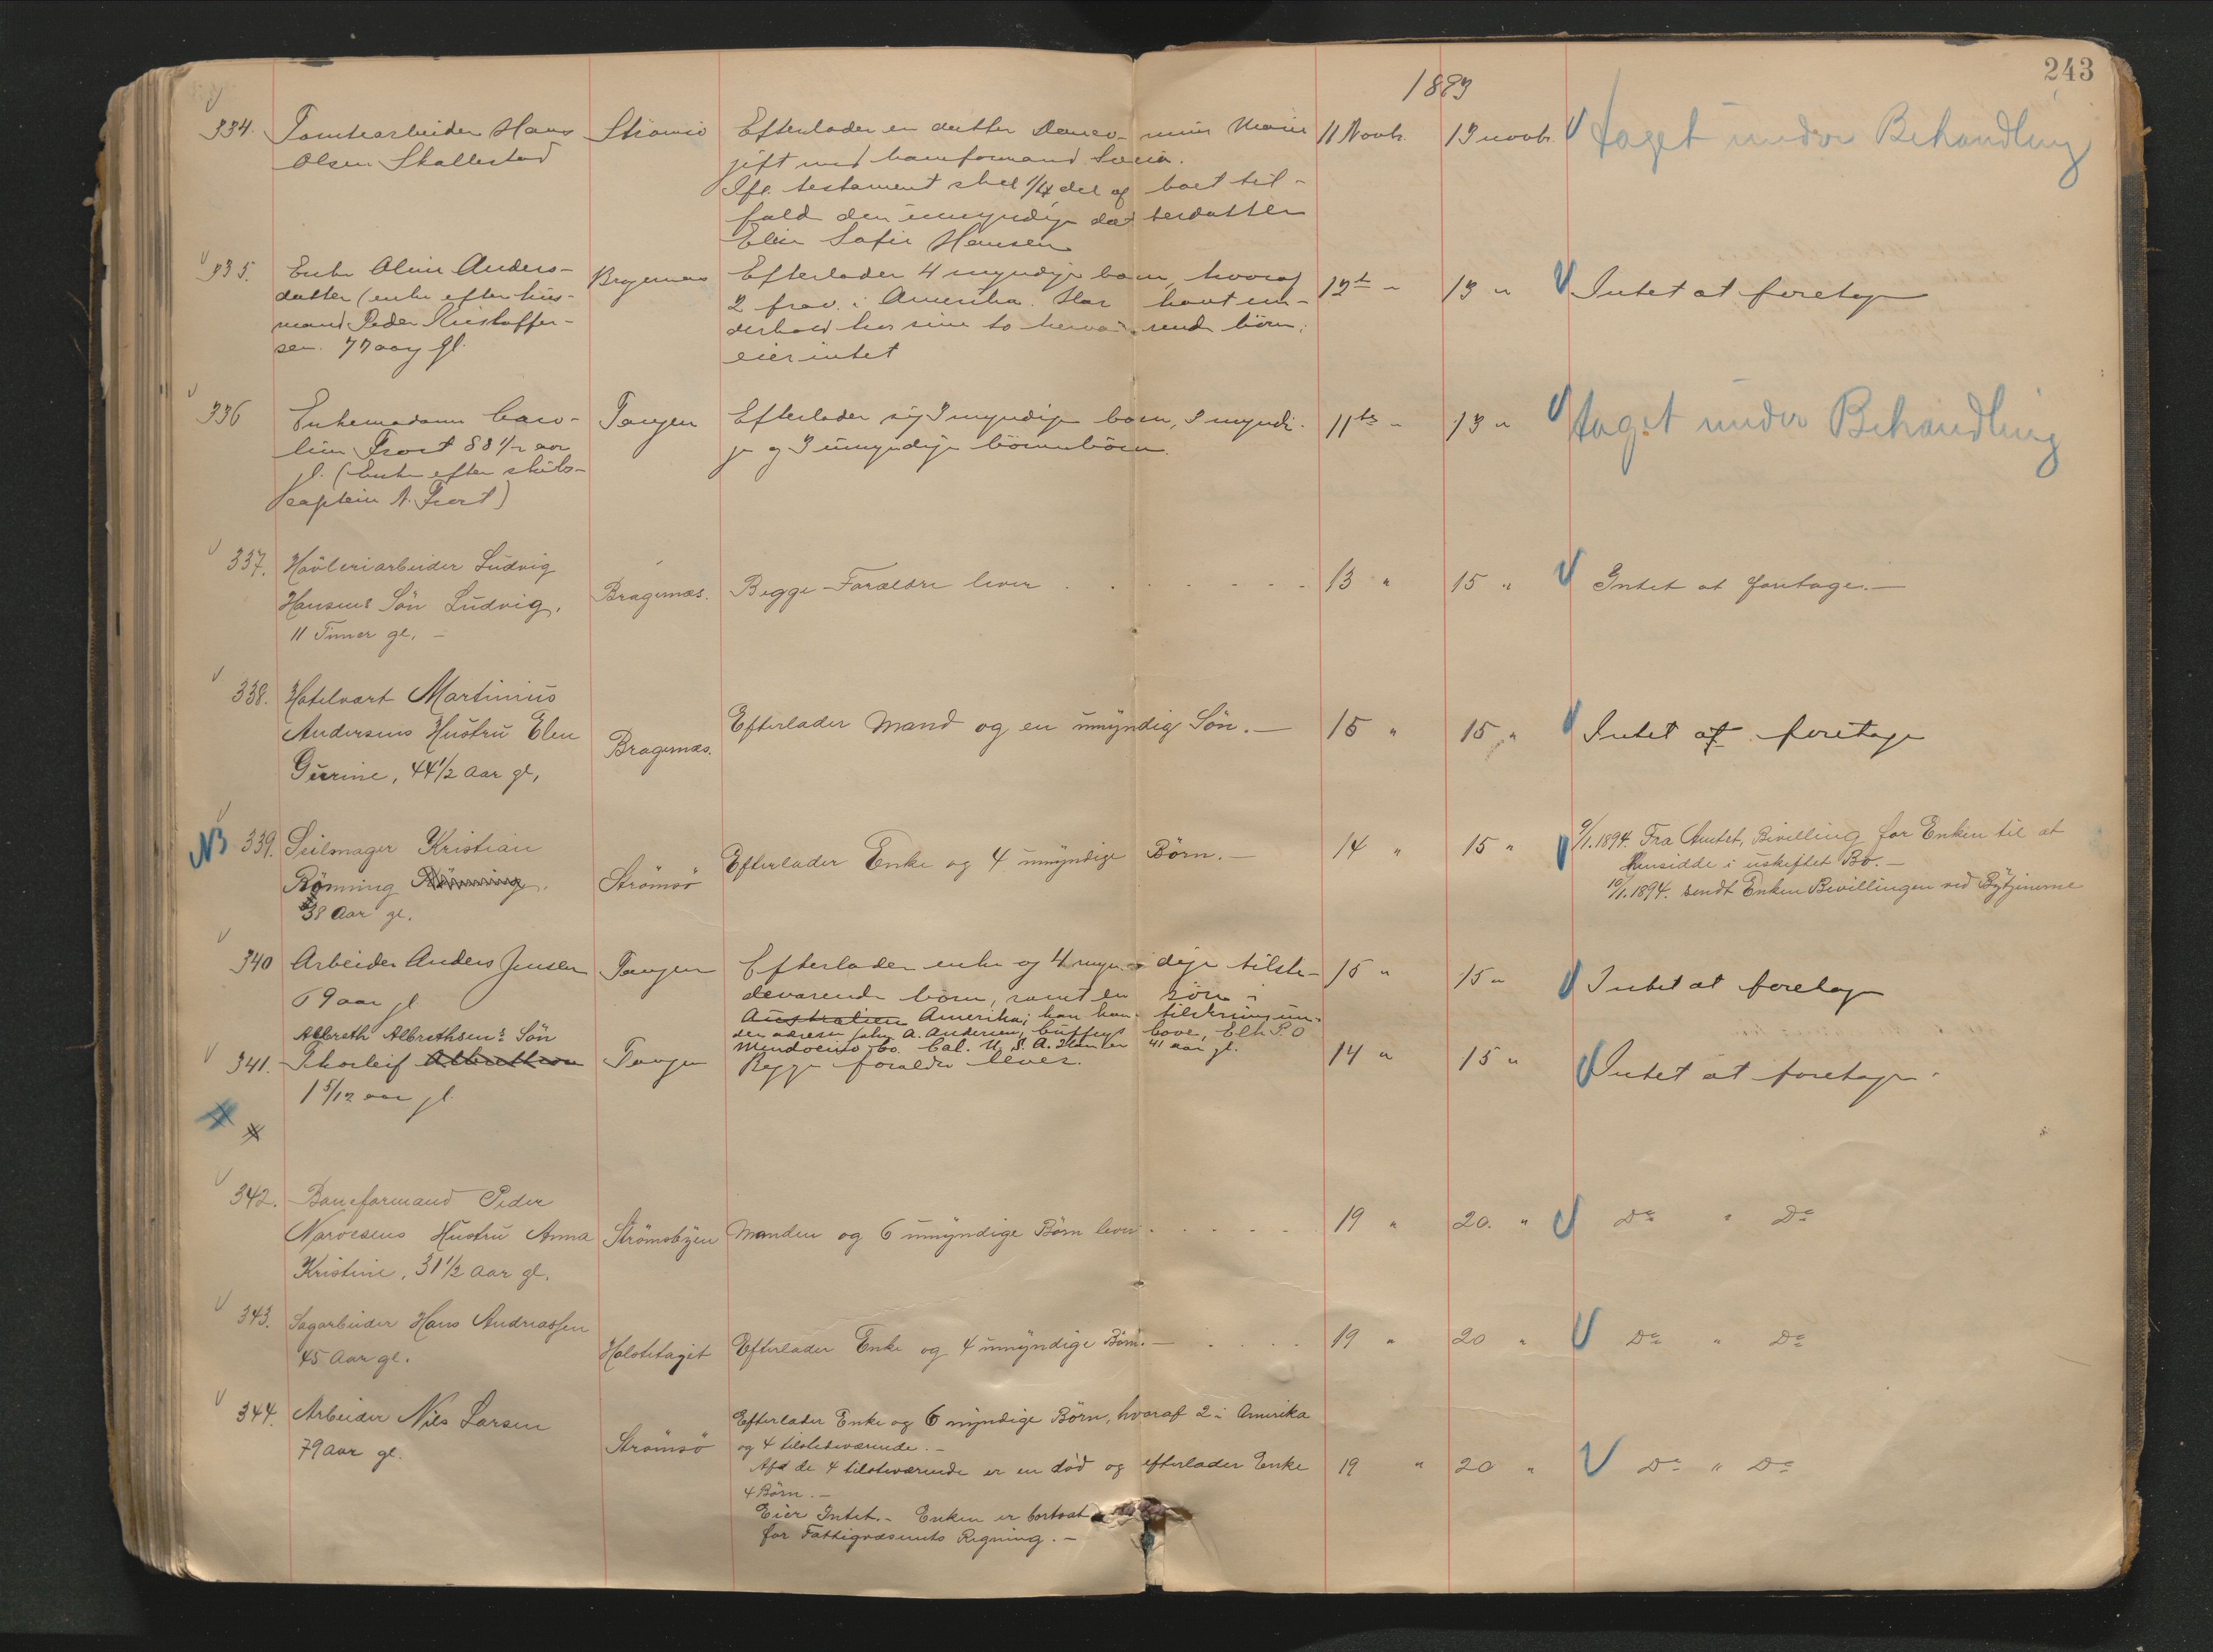 243
1893
334. Tomtearbeider Hans Strømsø Efterlader en datter Marie 11 Novb. 13 novb. taget under Behandling
Olsen Skallestad gift med baneformand
Ifl. testament skal 1/4 del af boet til-
fald den umyndige datterdatter
Elise Sofie Hansen
335. Enke Oline Anders- Bragernæs Efterlader 4 myndige børn, hvoraf 12te " 13 " Intet at foretage
datter (enke efter hus- 2 frav. i Amerika. Har havt un-
mand Peder Kristoffer- derhold hos sine to herværende börn.
sen. 77 aar gl. eier intet
336 Enkemadam Caro- Tangen Efterlader sig 3 myndige børn, 3 myndi- 11te " 13 " taget under Behandling
line Frost 88 1/2 aar ge og 3 umyndige börnebörn.
gl. (Enke efter skibs-
captein A. Frost)
337. Høvleriarbeider Ludvig
Hansens Sön Ludvig, Bragernæs. Begge Forældre lever 13 " 15 " Intet at foretage.-
11 Timer gl. -
338. Hotelvært Martinius
Andersens Hustru Elen Bragernæs. Efterlader Mand og en umyndig Sön. - 15 " 15 " Intet at foretage
Gurine, 44 1/2 Aar gl,
NB 339. Seilmager Kristian Efterlader Enke og 4 umyndige Börn. - 14 " 15 " 9/1.1894. Fra Amtet, Bevilling for Enken til at
Rönning Strömsö hensidde i uskiftet Bo. -
38 Aar gl. 10/1.1894. sendt Enken Bevillingen ved Bytjenerne
340 Arbeider Anders Jensen Tangen Efterlader enke og 4 myndige tilste- 15 " 15 " Intet at foretage
69 aar gl deværende börn, samt en sön i
Australien Amerika; han kan tilskrives un-
der adresse John A. Andersen, Cuffeys Cove, Elk P.O
Mendocino Co. Cal. U.S.A. Han er 41 aar gl.
Albreth Albrethsens Sön
341. Thorleif Albrethsen Tangen Begge forældre lever. 14 " 15 " Intet at foretage.
1 5/12 aar gl.
342. Baneformand Peder
Narvesens Hustru Anna Strömsbyen Manden og 6 umyndige Börn lever 19 " 20. " Do " Do
Kristine, 31 1/2 Aar gl.
343. Sagarbeider Hans Andreassen
45 Aar gl. Holstetaget Efterlader Enke og 4 umyndige Börn. - 19 " 20 " Do " Do
344. Arbeider Nils Larsen Efterlader Enke og 6 myndige Börn, hvoraf 2 i Amerika
79 Aar gl. Strömsö og 4 tilstedeværende. -
Af de 4 tilsteværende er en död og efterlader Enke 19 " 20 " Do " Do
4 Börn. -
Eier Intet. - Enken er bortsat
for Fattigvæsenets Regning. -